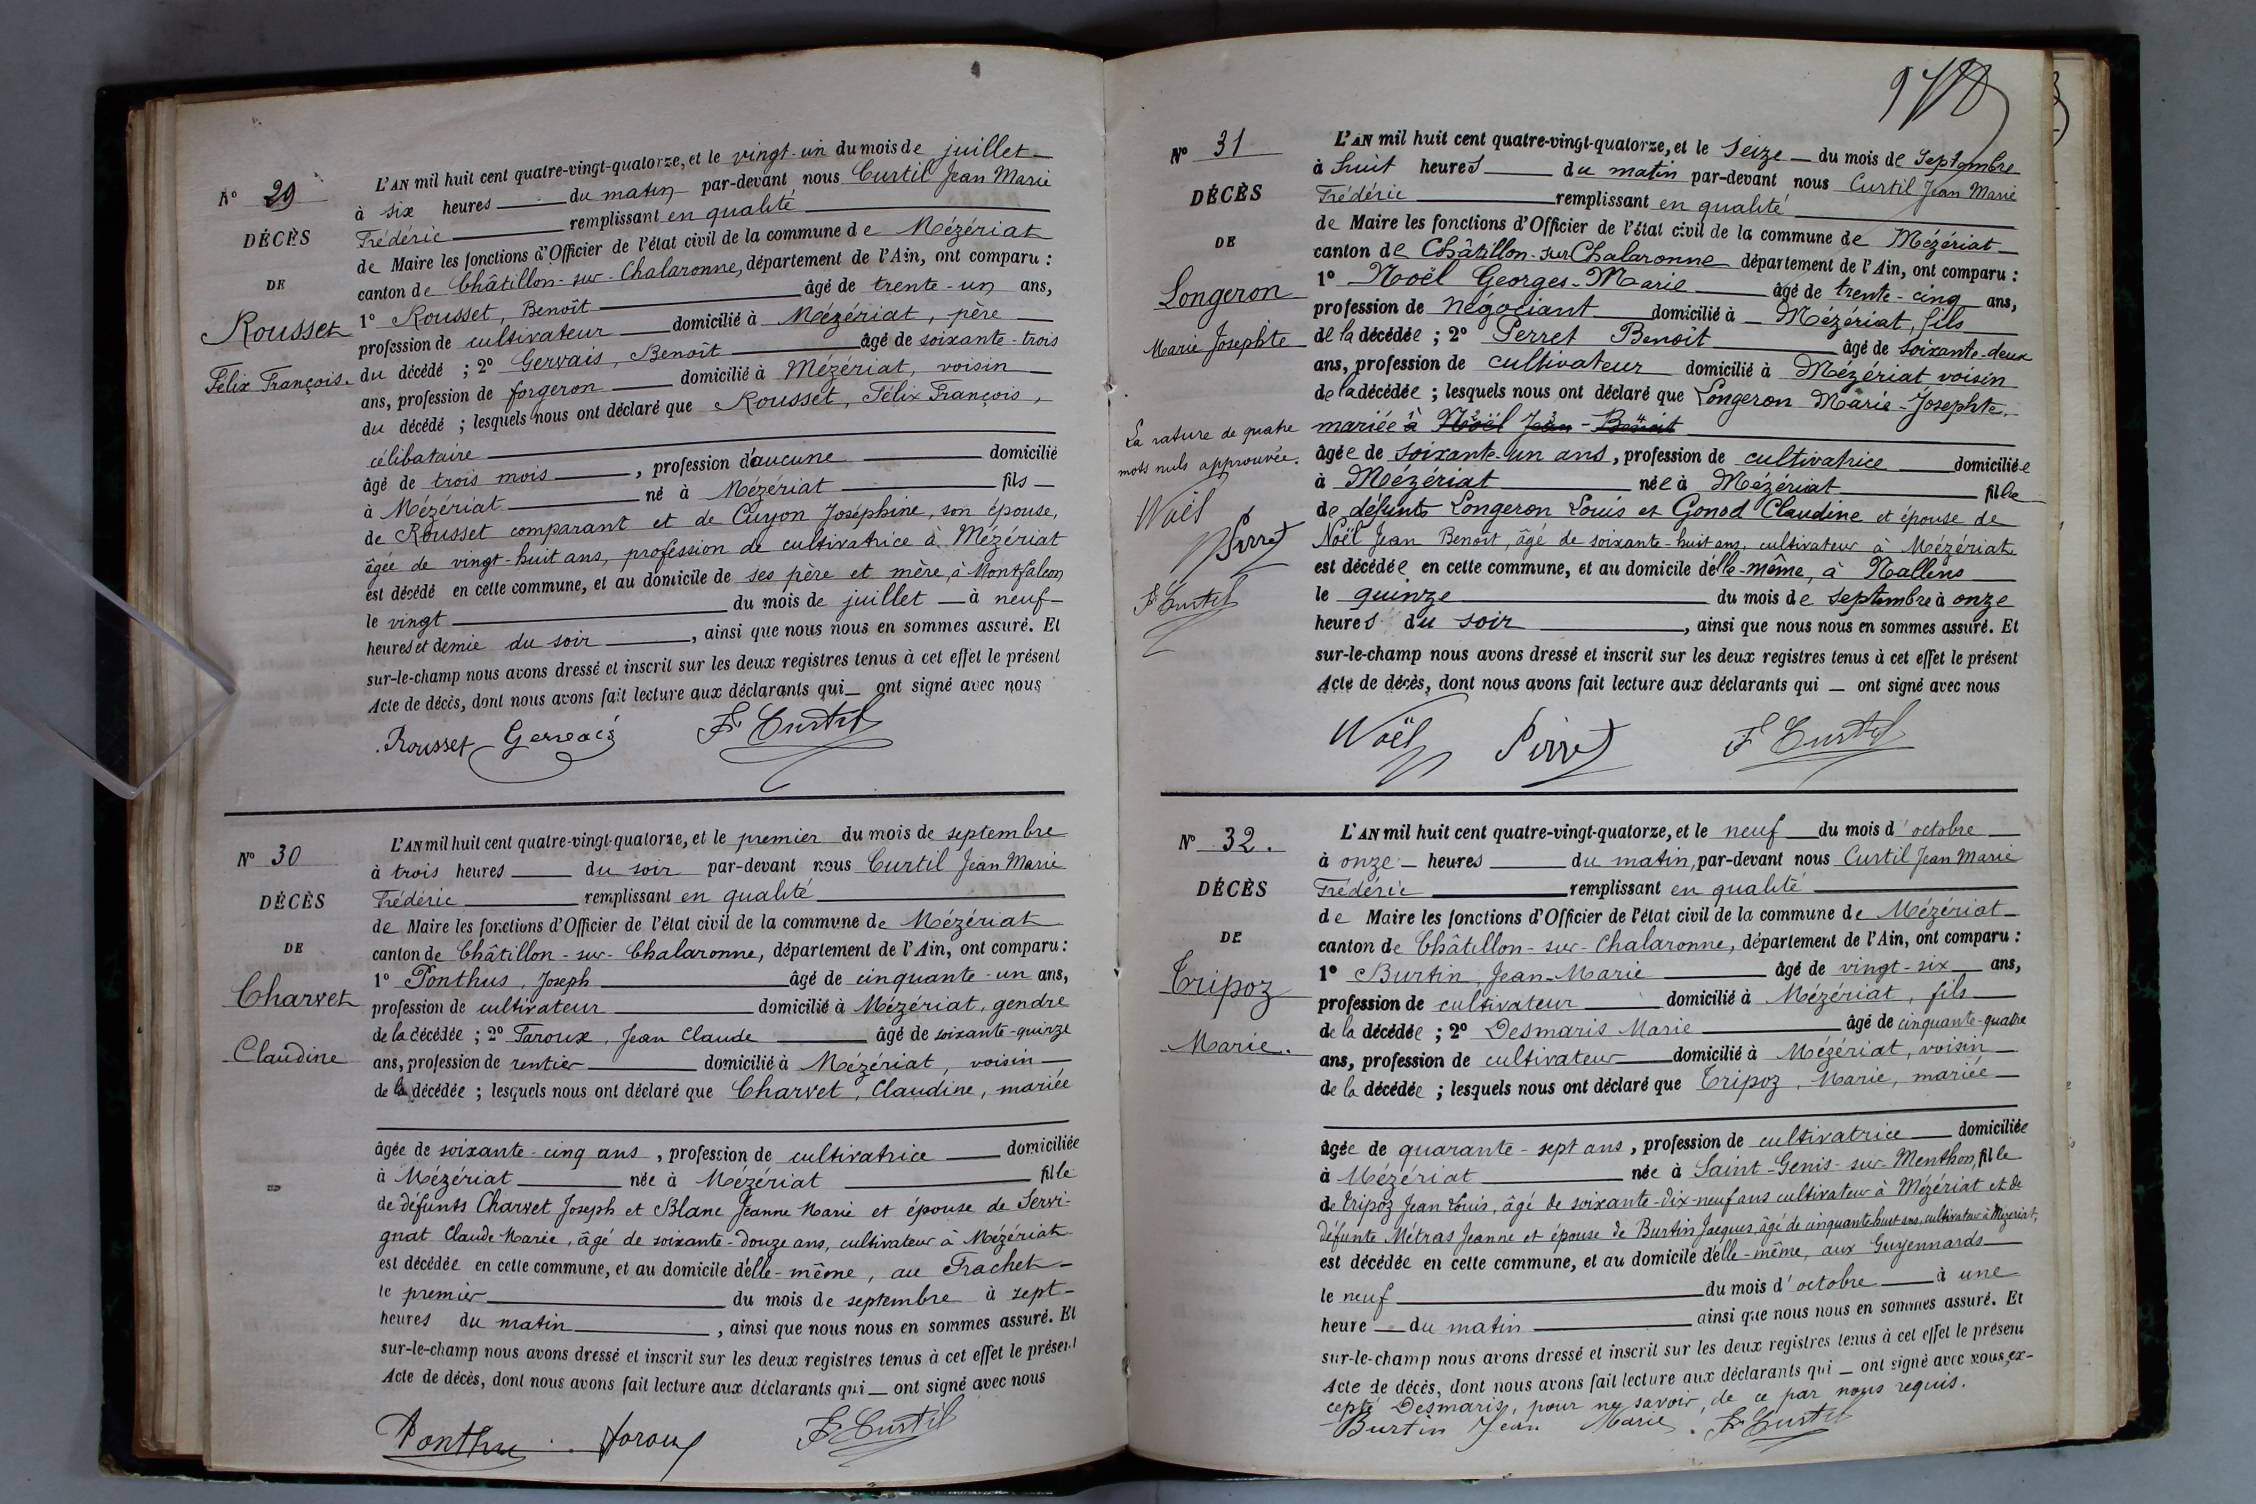 N° 29
DÉCÈS
DE
Rousset
Félix François.
L'AN mil huit cent quatre-vingt-quatorze, et le vingt-un du mois de juillet
à six heures du matin par-devant nous Curtil Jean Marie
Frédéric remplissant en qualité
de Maire les fonctions d'Officier de l'état civil de la commune de Mézériat
canton de Châtillon-sur-Chalaronne, département de l'Ain, ont comparu :
1° Rousset, Benoît âgé de trente-un ans,
profession de cultivateur domicilié à Mézériat, père
du décédé ; 2° Gervais, Benoît âgé de soixante-trois
ans, profession de forgeron domicilié à Mézériat, voisin
du décédé ; lesquels nous ont déclaré que Rousset, Félix François,
célibataire
âgé de trois mois, profession d'aucune domicilié
à Mézériat né à Mézériat fils
de Rousset comparant et de Cuyon Joséphine, son épouse,
âgée de vingt-huit ans, profession de cultivatrice à Mézériat
est décédé en cette commune, et au domicile de ses père et mère, à Montfalcon
le vingt du mois de juillet à neuf
heures et demie du soir, ainsi que nous nous en sommes assuré. Et
sur-le-champ nous avons dressé et inscrit sur les deux registres tenus à cet effet le présent
Acte de décès, dont nous avons fait lecture aux déclarants qui ont signé avec nous
Rousset Gervais F. Curtil
N° 30
DÉCÈS
DE
Charvet
Claudine
L'AN mil huit cent quatre-vingt-quatorze, et le premier du mois de septembre
à trois heures du soir par-devant nous Curtil Jean Marie
Frédéric remplissant en qualité
de Maire les fonctions d'Officier de l'état civil de la commune de Mézériat
canton de Châtillon-sur-Chalaronne, département de l'Ain, ont comparu :
1° Ponthus, Joseph âgé de cinquante-un ans,
profession de cultivateur domicilié à Mézériat, gendre
de la décédée ; 2° Taroux, Jean Claude âgé de soixante-quinze
ans, profession de rentier domicilié à Mézériat, voisin
de la décédée ; lesquels nous ont déclaré que Charvet, Claudine, mariée
âgée de soixante-cinq ans, profession de cultivatrice domiciliée
à Mézériat née à Mézériat fille
de défunts Charvet Joseph et Blanc Jeanne Marie et épouse de Servi-
gnat Claude Marie, âgé de soixante-douze ans, cultivateur à Mézériat
est décédée en cette commune, et au domicile d'elle-même, au Frachet
le premier du mois de septembre à sept
heures du matin, ainsi que nous nous en sommes assuré. Et
sur-le-champ nous avons dressé et inscrit sur les deux registres tenus à cet effet le présent
Acte de décès, dont nous avons fait lecture aux déclarants qui ont signé avec nous
Ponthus Taroux F. Curtil
N° 31
DÉCÈS
DE
Longeron
Marie Josephte
La rature de quatre
mots nuls approuvée.
Noël
Perret
F. Curtil
L'AN mil huit cent quatre-vingt-quatorze, et le seize du mois de septembre
à huit heures du matin par-devant nous Curtil Jean Marie
Frédéric remplissant en qualité
de Maire les fonctions d'Officier de l'état civil de la commune de Mézériat
canton de Châtillon-sur-Chalaronne département de l'Ain, ont comparu :
1° Noël Georges-Marie âgé de trente-cinq ans,
profession de négociant domicilié à Mézériat, fils
de la décédée ; 2° Perret Benoît âgé de soixante-deux
ans, profession de cultivateur domicilié à Mézériat, voisin
de la décédée ; lesquels nous ont déclaré que Longeron Marie-Josephte,
mariée à Noël Jean-Benoit
âgée de soixante-un ans, profession de cultivatrice domiciliée
à Mézériat née à Mézériat fille
de défunts Longeron Louis et Gonod Claudine et épouse de
Noël Jean Benoît, âgé de soixante-huit ans, cultivateur à Mézériat
est décédée en cette commune, et au domicile d'elle-même, à Nallens
le quinze du mois de septembre à onze
heures du soir, ainsi que nous nous en sommes assuré. Et
sur-le-champ nous avons dressé et inscrit sur les deux registres tenus à cet effet le présent
Acte de décès, dont nous avons fait lecture aux déclarants qui ont signé avec nous
Noël Perret F. Curtil
N° 32.
DÉCÈS
DE
Tripoz
Marie.
L'AN mil huit cent quatre-vingt-quatorze, et le neuf du mois d'octobre
à onze heures du matin, par-devant nous Curtil Jean Marie
Frédéric remplissant en qualité
de Maire les fonctions d'Officier de l'état civil de la commune de Mézériat
canton de Châtillon-sur-Chalaronne, département de l'Ain, ont comparu :
1° Burtin, Jean-Marie âgé de vingt-six ans,
profession de cultivateur domicilié à Mézériat, fils
de la décédée ; 2° Desmaris Marie âgé de cinquante-quatre
ans, profession de cultivateur domicilié à Mézériat, voisin
de la décédée ; lesquels nous ont déclaré que Tripoz, Marie, mariée
âgée de quarante-sept ans, profession de cultivatrice domiciliée
à Mézériat née à Saint-Genis-sur-Menthon, fille
de Tripoz Jean Louis, âgé de soixante-dix-neuf ans cultivateur à Mézériat et de
défunte Métras Jeanne et épouse de Burtin Jacques, âgé de cinquante-huit ans, cultivateur à Mézériat,
est décédée en cette commune, et au domicile d'elle-même, aux Guyennards
le neuf du mois d'octobre à une
heure du matin ainsi que nous nous en sommes assuré. Et
sur-le-champ nous avons dressé et inscrit sur les deux registres tenus à cet effet le présent
Acte de décès, dont nous avons fait lecture aux déclarants qui ont signé avec nous, ex-
cepté Desmaris, pour ne savoir, de ce par nous requis.
Burtin Jean Marie. F. Curtil